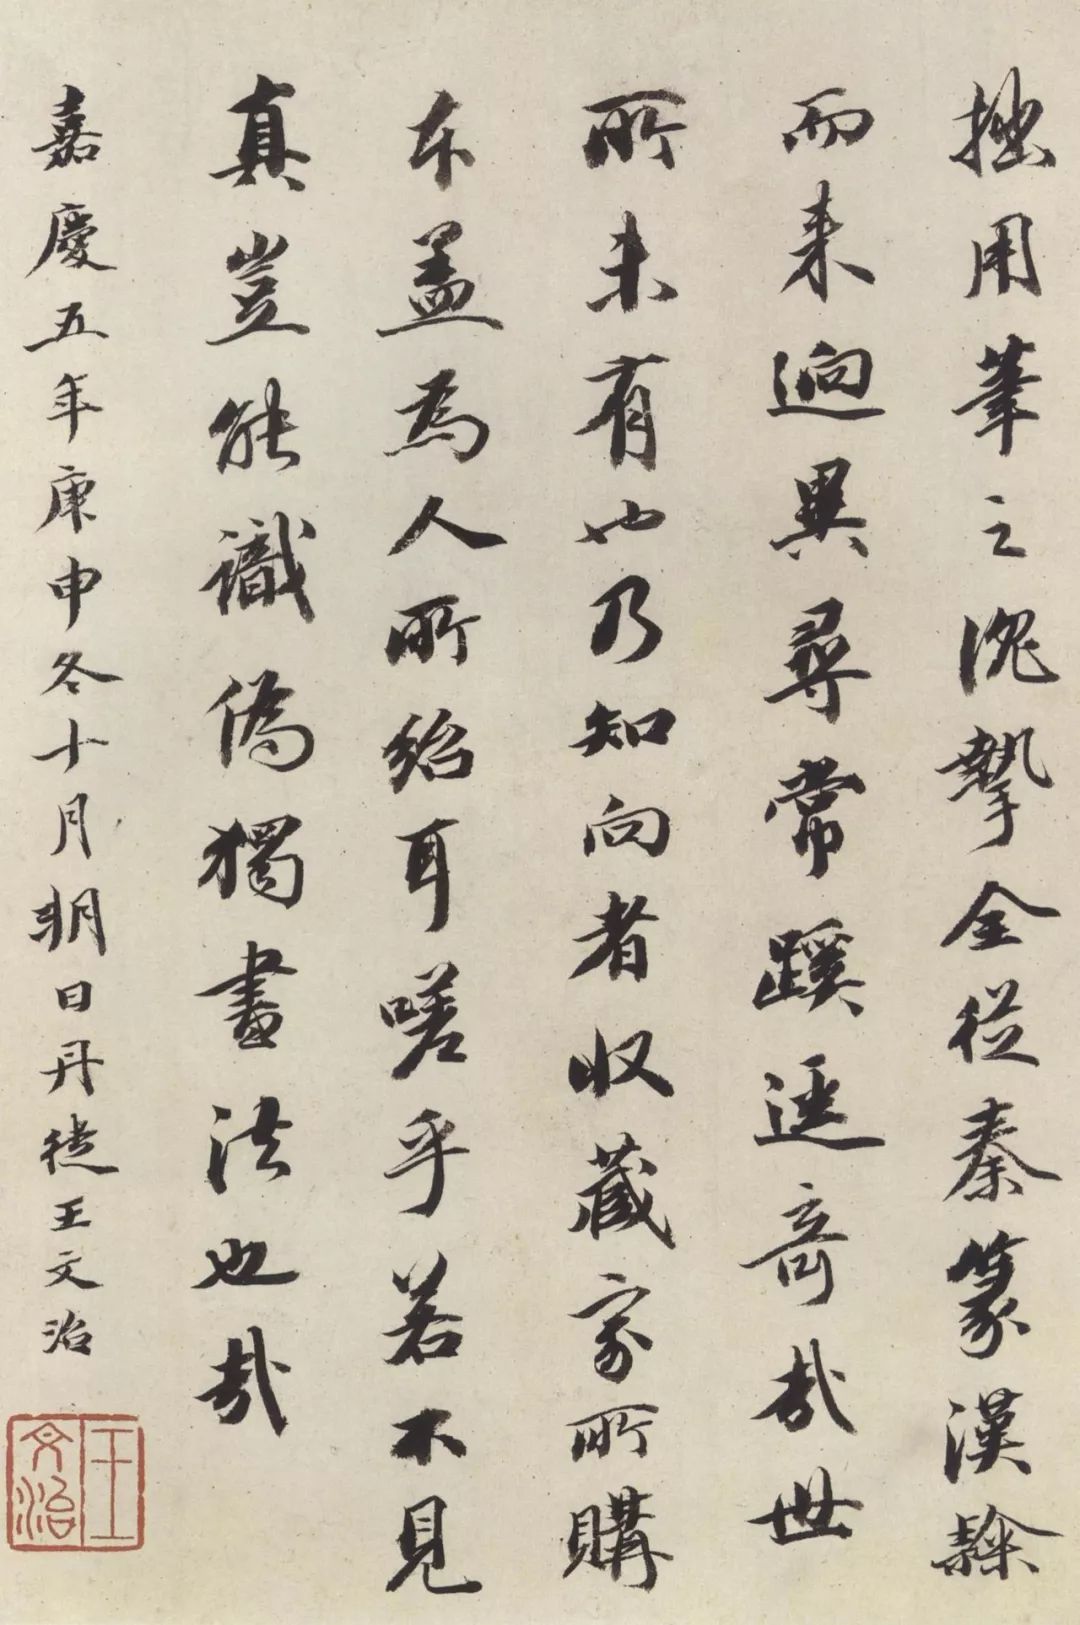 拙用筆之沈摯全從秦篆漢隸
而来迥異尋常蹊逕奇哉世
所未有也乃知向者收藏家所購
本盖為人所紿耳嗟乎若不見
真豈能識偽獨書法也哉
嘉慶五年庚申冬十月朔日丹徒王文治
王文治